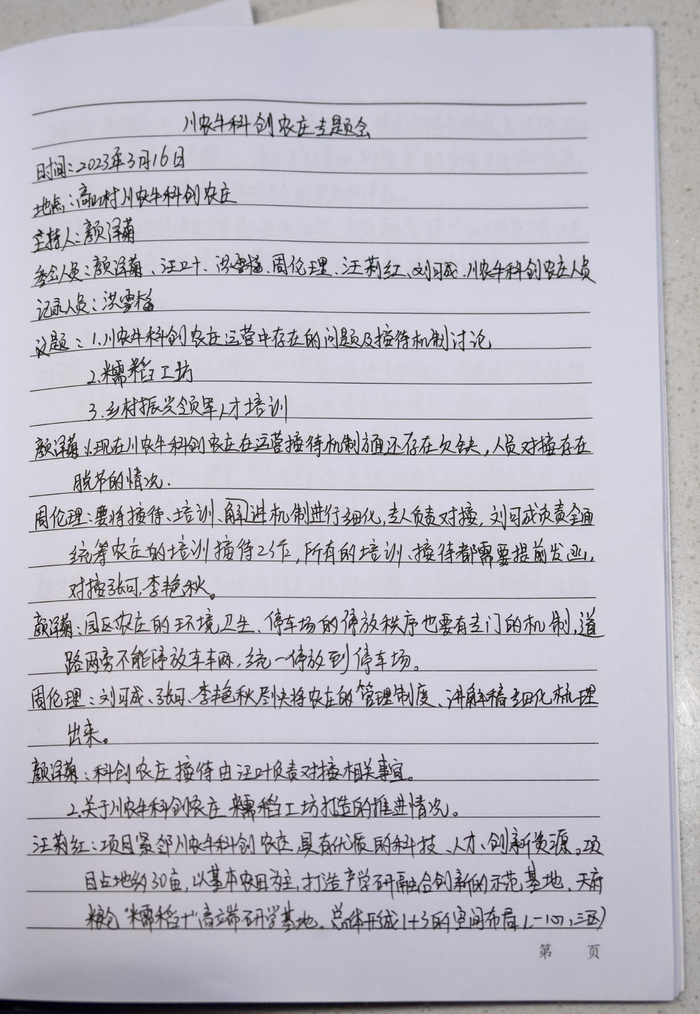 川农牛科创农庄专题会
时间：2023年3月16日
地点：高山村川农牛科创农庄
主持人：颜泽菊
参会人员：颜泽菊、汪叶、洪雪梅、周伦理、汪莉红、刘习成、川农牛科创农庄人员
记录人员：洪雪梅
议题：1.川农牛科创农庄运营中存在的问题及接待机制讨论
2.糯稻工坊
3.乡村振兴领军人才培训
颜泽菊：1.现在川农牛科创农庄在运营接待机制方面还存在欠缺，人员对接存在
脱节的情况.
周伦理：要将接待、培训、解说机制进行细化，专人负责对接，刘习成负责全面
统筹农庄的培训接待工作，所有的培训、接待都需要提前发函，
对接张可、李艳秋。
颜泽菊：园区农庄的环境卫生、停车场的停放秩序也要有专门的机制，道
路两旁不能停放车车辆，统一停放到停车场。
周伦理：刘习成、张可、李艳秋尽快将农庄的管理制度、讲解稿细化梳理
出来。
颜泽菊：科创农庄接待由汪叶负责对接相关事宜。
2.关于川农牛科创农庄糯稻工坊打造的推进情况。
汪莉红：项目紧邻川农牛科创农庄，具有优质的科技、人才、创新资源。项
目占地约30亩，以基本农田为主，打造产学研融合创新的示范基地，天府
粮仓"糯稻+"高端研学基地。总体形成1+3的空间布局（一心，三区）
第 页